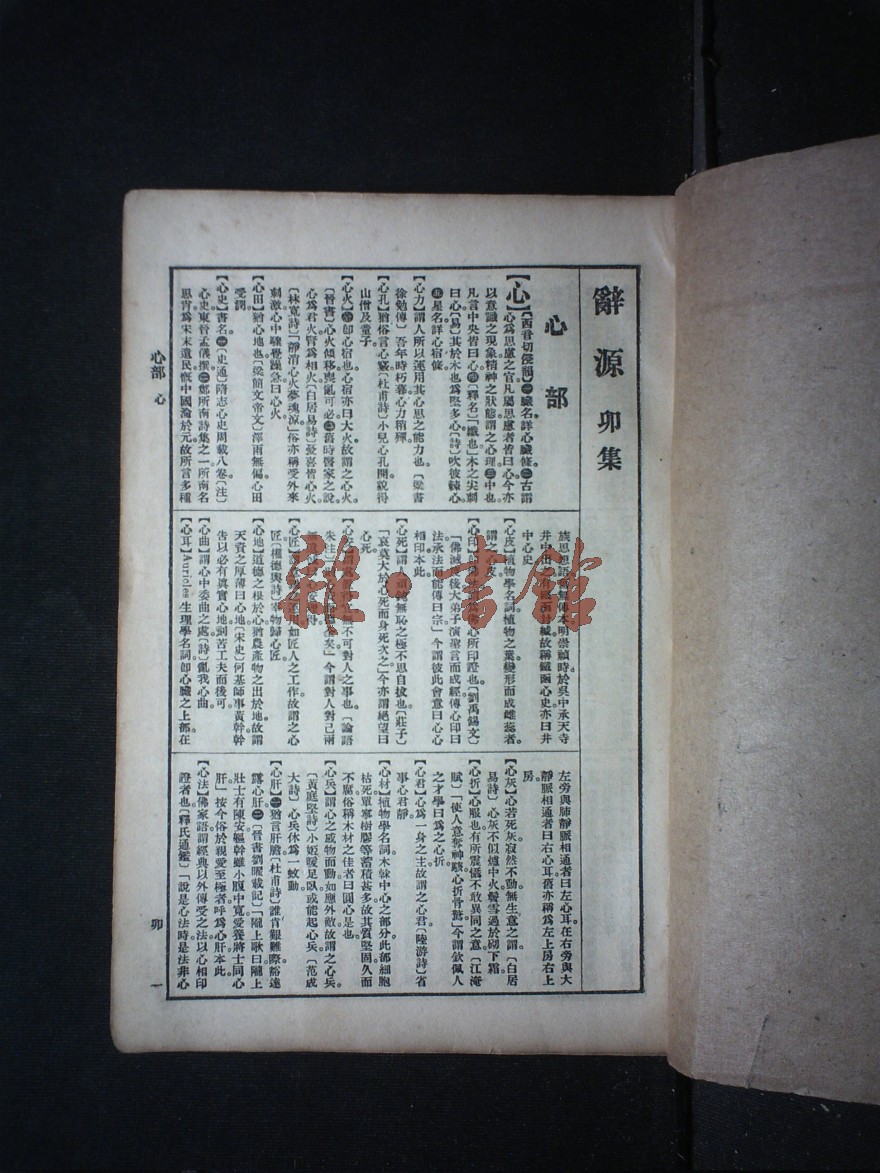 辭源 卯集
心部
【心】【西音切侵韻】㊀臟名詳心臟條㊁古謂
心爲思慮之官凡屬思慮者皆曰心今亦
以意識之現象精神之狀態謂之心理㊂中也
凡言中央皆曰心㊃〔釋名〕「纖也」木之尖刺
曰心〔易〕其於木也爲堅多心〔詩〕吹彼棘心
㊄星名詳心宿條
【心力】謂人所以運用其心思之能力也。〔梁書
徐勉傳〕吾年時朽暮心力稍殫。
【心孔】猶俗言心竅〔杜甫詩〕小兒心孔開貌得
山僧及童子
【心火】㊀卽心宿也心宿亦曰大火故謂之心火。
〔晉書〕心火傾移喪亂可必㊁舊時醫家之說
心爲君火腎爲相火〔白居易詩〕憂喜皆心火。
〔林寬詩〕「靜消心火夢魂涼」俗亦稱受外來
刺激心中驟覺躁急曰心火。
【心田】猶心地也〔梁簡文帝文〕澤雨無偏心田
受潤
【心史】書名㊀〔史通〕隋志心史周載八卷〔注〕
心史東晉孟儀撰㊁鄭所南詩集之一所南名
思肖爲宋末遺民慨中國淪於元故所言多種
族思想
井中
中心史
【心皮】植物學名詞植物之葉變形而成雌蕊者
謂之心皮
【心印】心所印證也〔劉禹錫文〕
「佛滅後大弟子演聖言而成經傳心印曰
法承法而能傳曰宗」今謂彼此會意曰心心
相印本此
【心死】謂頑鈍無恥之極不思自拔也〔莊子〕
「哀莫大於心死而身死次之」今亦謂絕望曰
心死
無不可對人之事也〔論語
朱注〕今謂對人對己兩
【心匠】如匠人之工作故謂之心
匠〔權德輿詩〕幸物歸心匠
【心地】道德之根於心猶農產物之出於地故謂
天資之厚薄曰心地〔宋史〕何基師事黃榦榦
告以必有眞實心地刻苦工夫而後可。
【心曲】謂心中委曲之處〔詩〕亂我心曲
【心耳】Auricles生理學名詞卽心臟之上部在
左旁與肺靜脈相通者曰左心耳在右旁與大
靜脈相通者曰右心耳舊亦稱爲左上房右上
房。
【心灰】心若死灰寂然不動無生意之謂〔白居
易詩〕心灰不似爐中火鬢雪過於砌下霜
【心折】心服也有所震懾不敢異同之意〔江淹
賦〕「使人意奪神駭心折骨驚」今謂欽佩人
之才學曰爲之心折
【心君】心爲一身之主故謂之心君〔陸游詩〕省
事心君靜
【心材】植物學名詞木榦中心之部分此部細胞
枯死單寧樹膠等蓄積甚多故其質堅固久而
不腐俗稱木材之佳者曰圓心是也。
【心兵】謂心之感物而動如應外敵故謂之心兵
〔黃庭堅詩〕小姬暖足臥或能起心兵〔范成
大詩〕心兵休爲一蚊動
【心肝】㊀猶言肝膽〔杜甫詩〕誰肯艱難際豁達
露心肝㊁〔晉書劉曜載記〕「隴上歌曰隴上
壯士有陳安軀幹雖小腹中寬愛養將士同心
肝」按今俗於親愛至極者呼爲心肝本此。
【心法】佛家語謂經典以外傳受之法以心相印
證者也〔釋氏通鑑〕「說是心法時是法非心
心部 心
卯 一
雜·書館